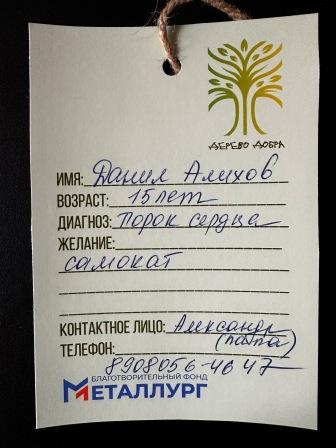 ДЕРЕВО ДОБРА
ИМЯ: Данил Алихов
ВОЗРАСТ: 15 лет
ДИАГНОЗ: порок сердца
ЖЕЛАНИЕ:
самокат
КОНТАКТНОЕ ЛИЦО: Александр
(папа)
ТЕЛЕФОН:
8908056-4647
БЛАГОТВОРИТЕЛЬНЫЙ ФОНД
МЕТАЛЛУРГ